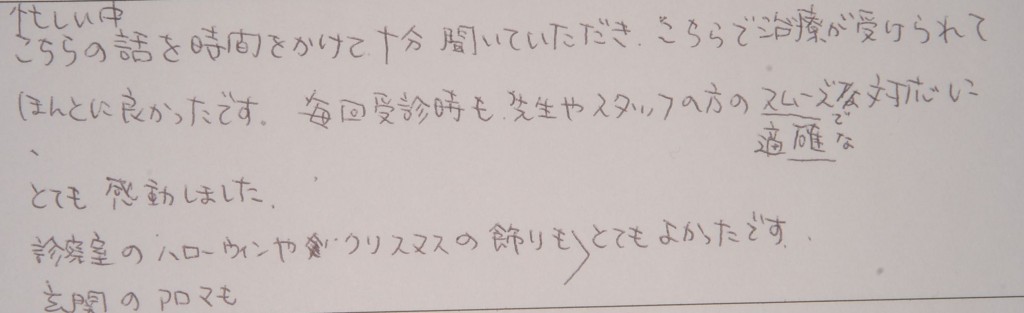 忙しい中
こちらの話を時間をかけて十分聞いていただき、こちらで治療が受けられて
ほんとに良かったです。毎回受診時も、先生やスタッフの方のスムーズな対応に
で
適確な
とても感動しました。
診察室のハローウィンやクリスマスの飾りもとてもよかったです。
玄関のアロマも